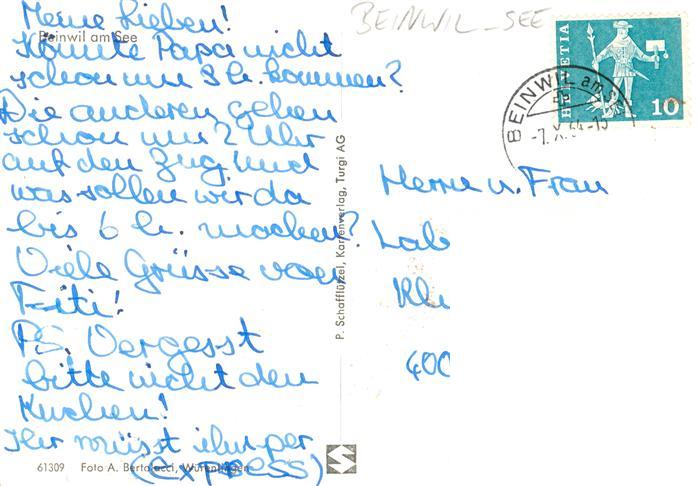 Meine Lieben!
Beinwil am See
Könnte Papa nicht
schon um 3 h. kommen?
Die anderen gehen
schon um 2 Uhr
auf den Zug, und
was sollen wir da
bis 6 h. machen?
Viele Grüsse von
Fiti!
PS. Vergesst
bitte nicht den
Kuchen!
Ihr müsst ihn per
(EXPRESS)
61309 Foto A. Bertolacci, Würenlingen
P. Schafflützel, Kartenverlag, Turgi AG
BEINWIL-SEE
HELVETIA
10
BEINWIL am
-7.X.64-15
Herrn u. Frau
Lab
Kl
400